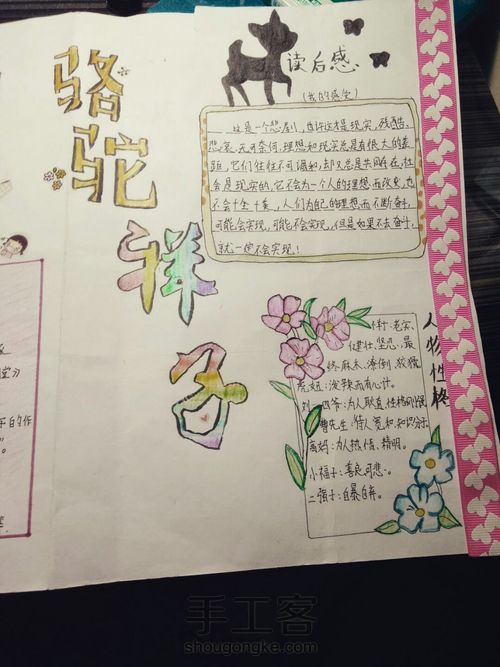 骆驼祥子
读后感
(我的感受)
这是一个悲剧,也许这才是现实,残酷、
悲哀、无可奈何,理想和现实总是有很大的差
距,它们往往不可调和,却又总是共同存在,社
会是现实的,它不会为一个人的理想而改变,也
不会十全十美,人们为自己的理想而不断奋斗,
可能会实现,可能不会实现,但是如果不去奋斗,
就一定不会实现!
人物性格
祥子:老实、
健壮、坚忍、最
终麻木、潦倒、狡猾
虎妞:泼辣而有心计。
刘四爷:为人耿直,性格刚强
曹先生:待人宽和,知识分子
高妈:为人热情、精明。
小福子:善良可悲。
二强子:自暴自弃。
》
下的作
”。
手工客
shougongke.com